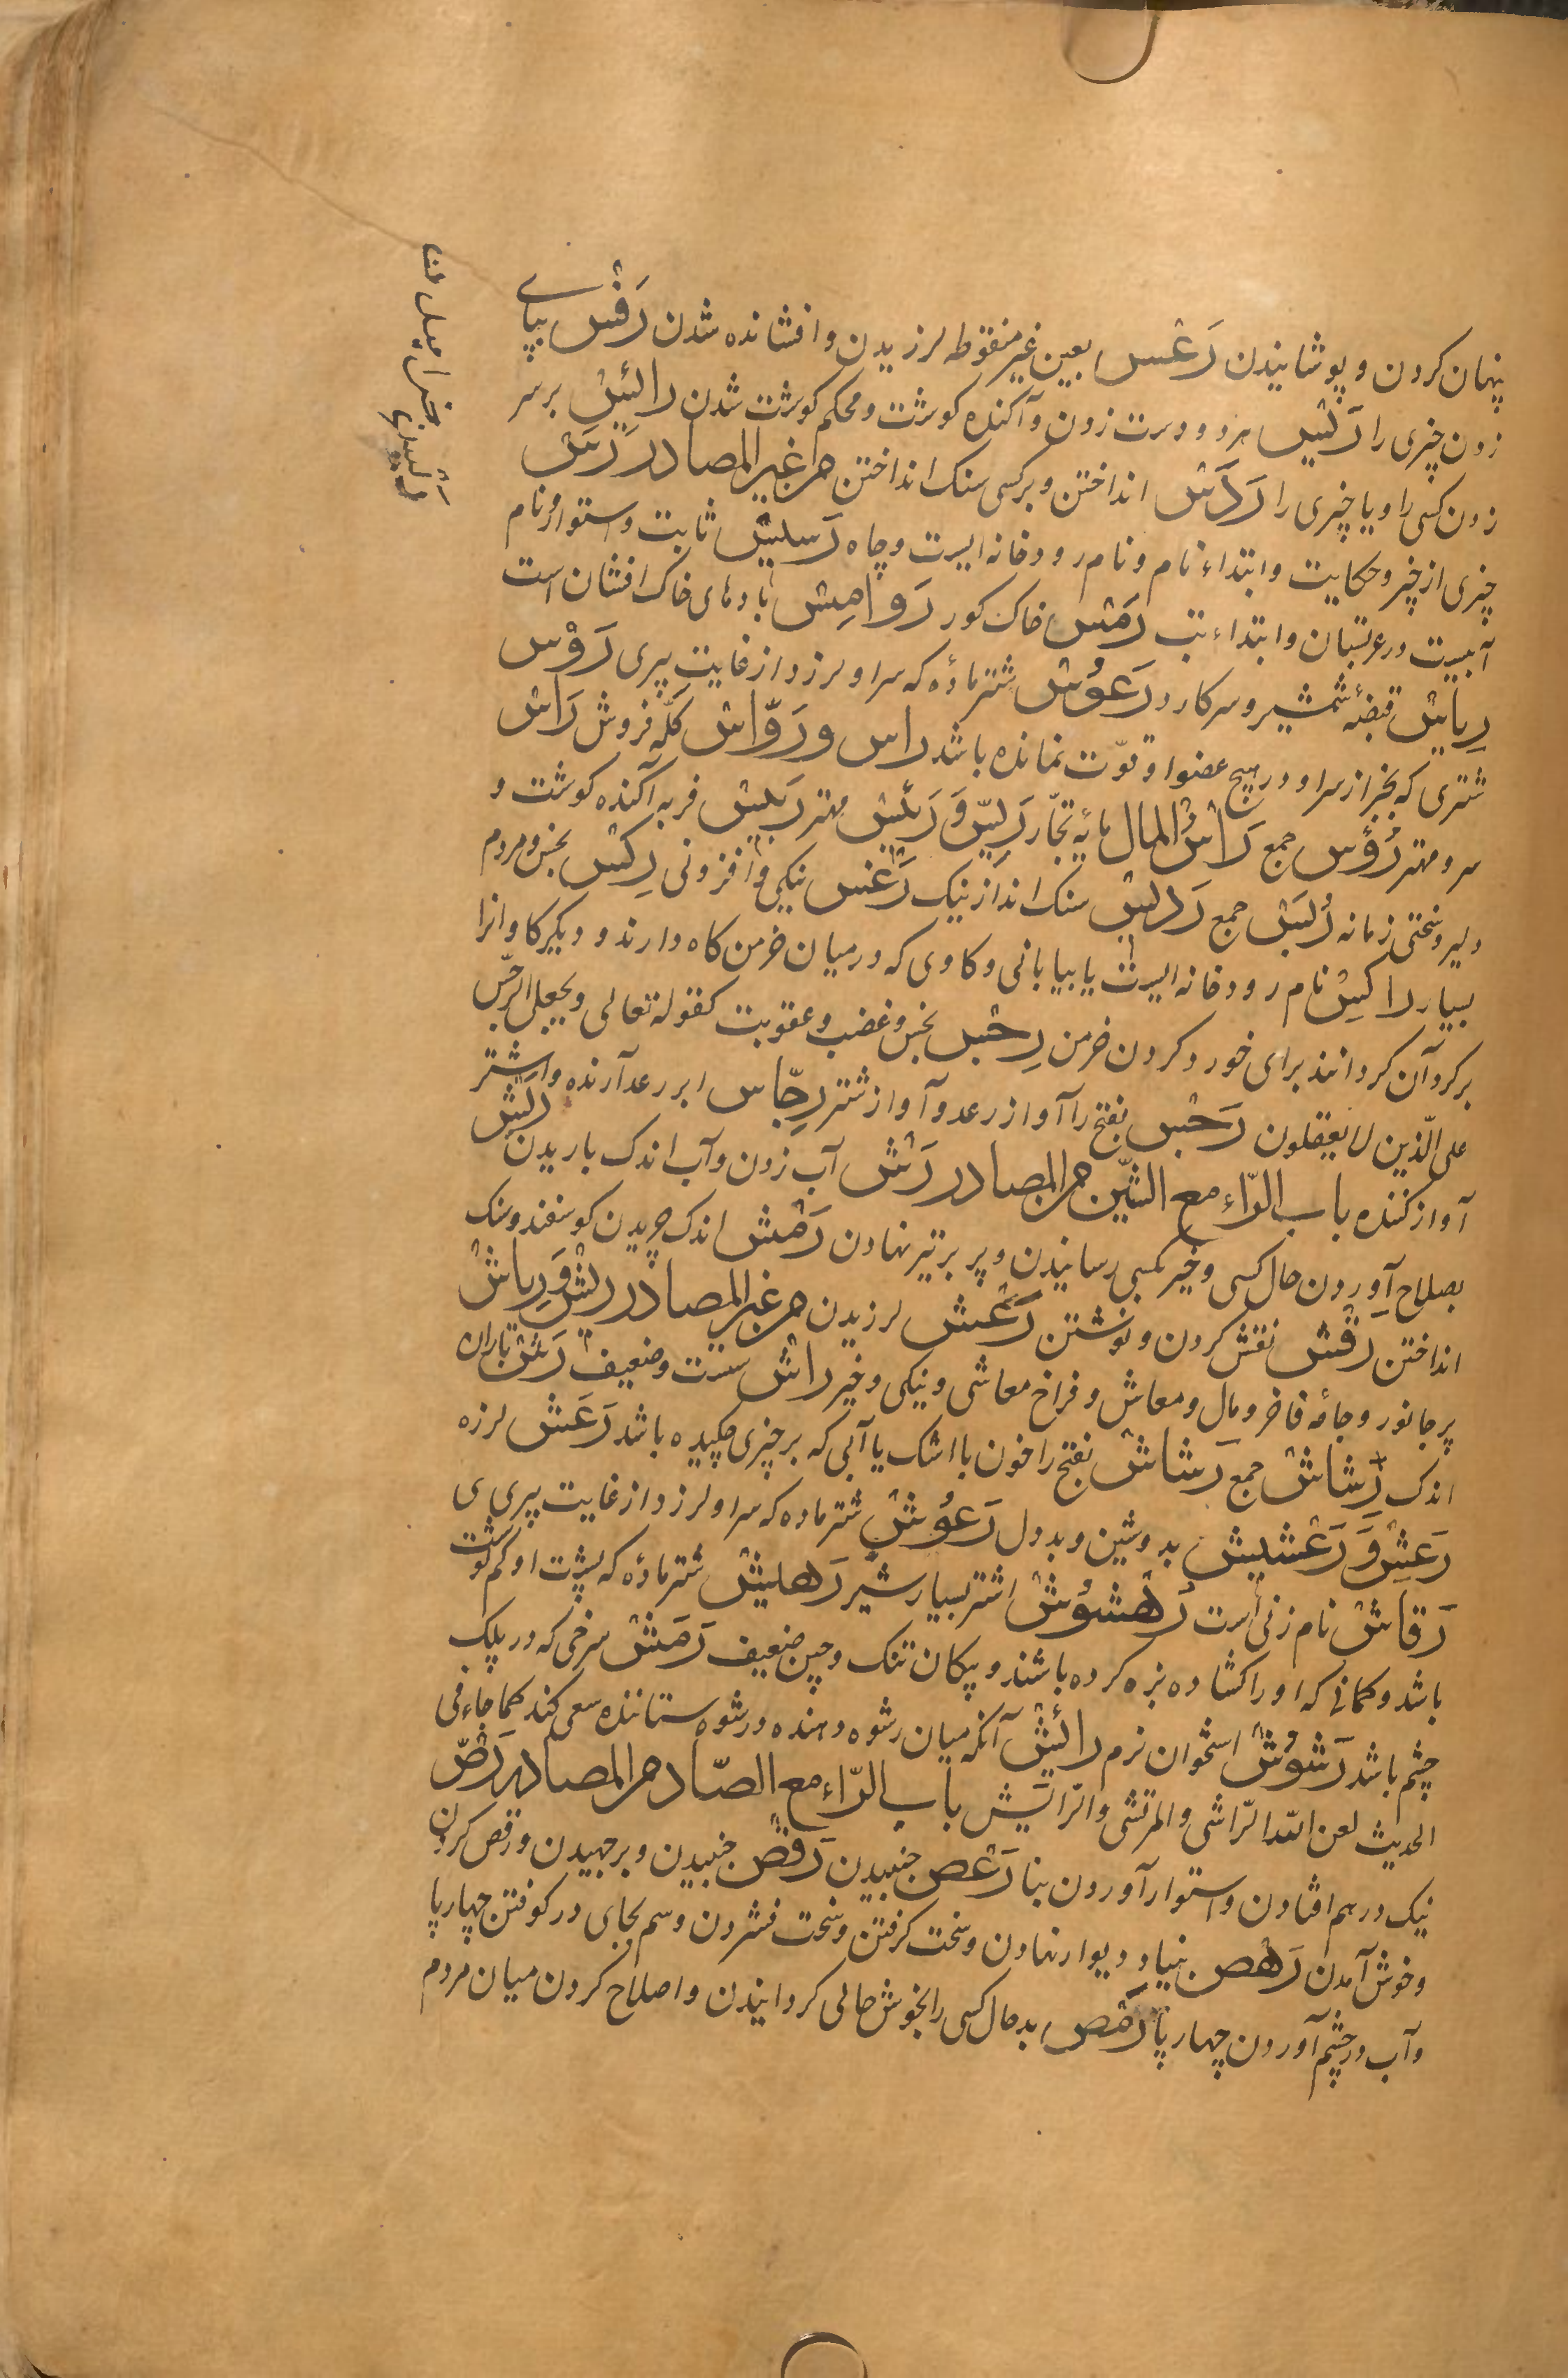 پنهان کردن و پوشانیدن رَعْس بعین غیر منقوطه لرزیدن و افشانده شدن رَفْس بپای
زدن چیزی را رَبْس هر دو دست زدن و آکنده کوشت و محکم کوشت شدن رائس بر سر
زدن کسی را و یا چیزی را رَدْس انداختن و بر کسی سنک انداختن من غیر المصادر رَسّ
چیزی از خبر و حکایت و ابتداء نام و نام رودخانه ایست و چاه رَسیس ثابت و استوار و نام
آبیست در عربستان و ابتداء تب رَمْس خاک کور رَوامِس بادهای خاک افشان است
رِیاس قبضهٔ شمشیر و سر کارد رَعُوس شتر ماده که سر او لرزد از غایت پیری رَؤس
شتری که بجز از سر او در هیچ عضو او قوّت نمانده باشد راس و رَوّاس کلّه فروش رَاس
سر و مهتر رُؤس جمع رَاسُ المال مایهٔ تجّار رَیِّس وَ رَئیس مهتر رَبیس فربه آکنده کوشت و
دلیر و سختی زمانه رُبَس جمع رَدیس سنک انداز نیک رَغْس نیکی و افزونی رِکْس نجس و مردم
بسیار راکِس نام رودخانه ایست یا بیابانی و کاوی که در میان خرمن کاه دارند و دیگر کاو انرا
بر کرد آن کردانند برای خورد کردن خرمن رِجْس نجس و غضب و عقوبت کقوله تعالی و یجعل الرجس
علی الّذین لا یعقلون رَجْس بفتح را آواز رعد و آواز شتر رجّاس ابر رعد آرنده و اشتر
آواز کننده باب الرّاء مع الشّین من المصادر رَشّ آب زدن و آب اندک باریدن رَیْش
بصلاح آوردن حال کسی و خیر بکسی رسانیدن و پر بر تیر نهادن رَمْش اندک چریدن کوسفند و سنک
انداختن رَقْش نقش کردن و نوشتن رَعْش لرزیدن من غیر المصادر رِیْش وَ رِیاش
پر جانور و جامهٔ فاخر و مال و معاش و فراخ معاشی و نیکی و خیر راش سست و ضعیف رَشّ باران
اندک رِشاش جمع رَشاش بفتح را خون یا اشک یا آبی که بر چیزی چکیده باشد رَعَش لرزه
رَعِش وَ رَعْشیش بد و شین و بددل رَعُوش شتر ماده که سر او لرزد از غایت پیری
رَقاش نام زنی است رُهْشُوش اشتر بسیار شیر رَهیش شتر ماده که پشت او کم کوشت
باشد و کمانی که او را کشاده بزه کرده باشند و پیکان تنک و چین ضعیف رَمَش سرخی که در پلک
چشم باشد رَشوُش استخوان نرم رائِش آنکه میان رشوه دهنده و رشوه ستاننده سعی کند کما جاء فی
الحدیث لعن الله الرّاشی و المرتشی و الرّایش باب الرّاء مع الصّاد من المصادر رَصّ
نیک در هم افتادن و استوار آوردن بنا رَعْص جنبیدن رَقْص جنبیدن و بر جهیدن و رقص کردن
و خوش آمدن رَهْص بنیاد دیوار نهادن و سخت کرفتن و سخت فشردن و سم بجای در کوفتن چهارپا
و آب در چشم آوردن چهارپا رَمْص بد حال کسی را بخوش حالی کردانیدن و اصلاح کردن میان مردم